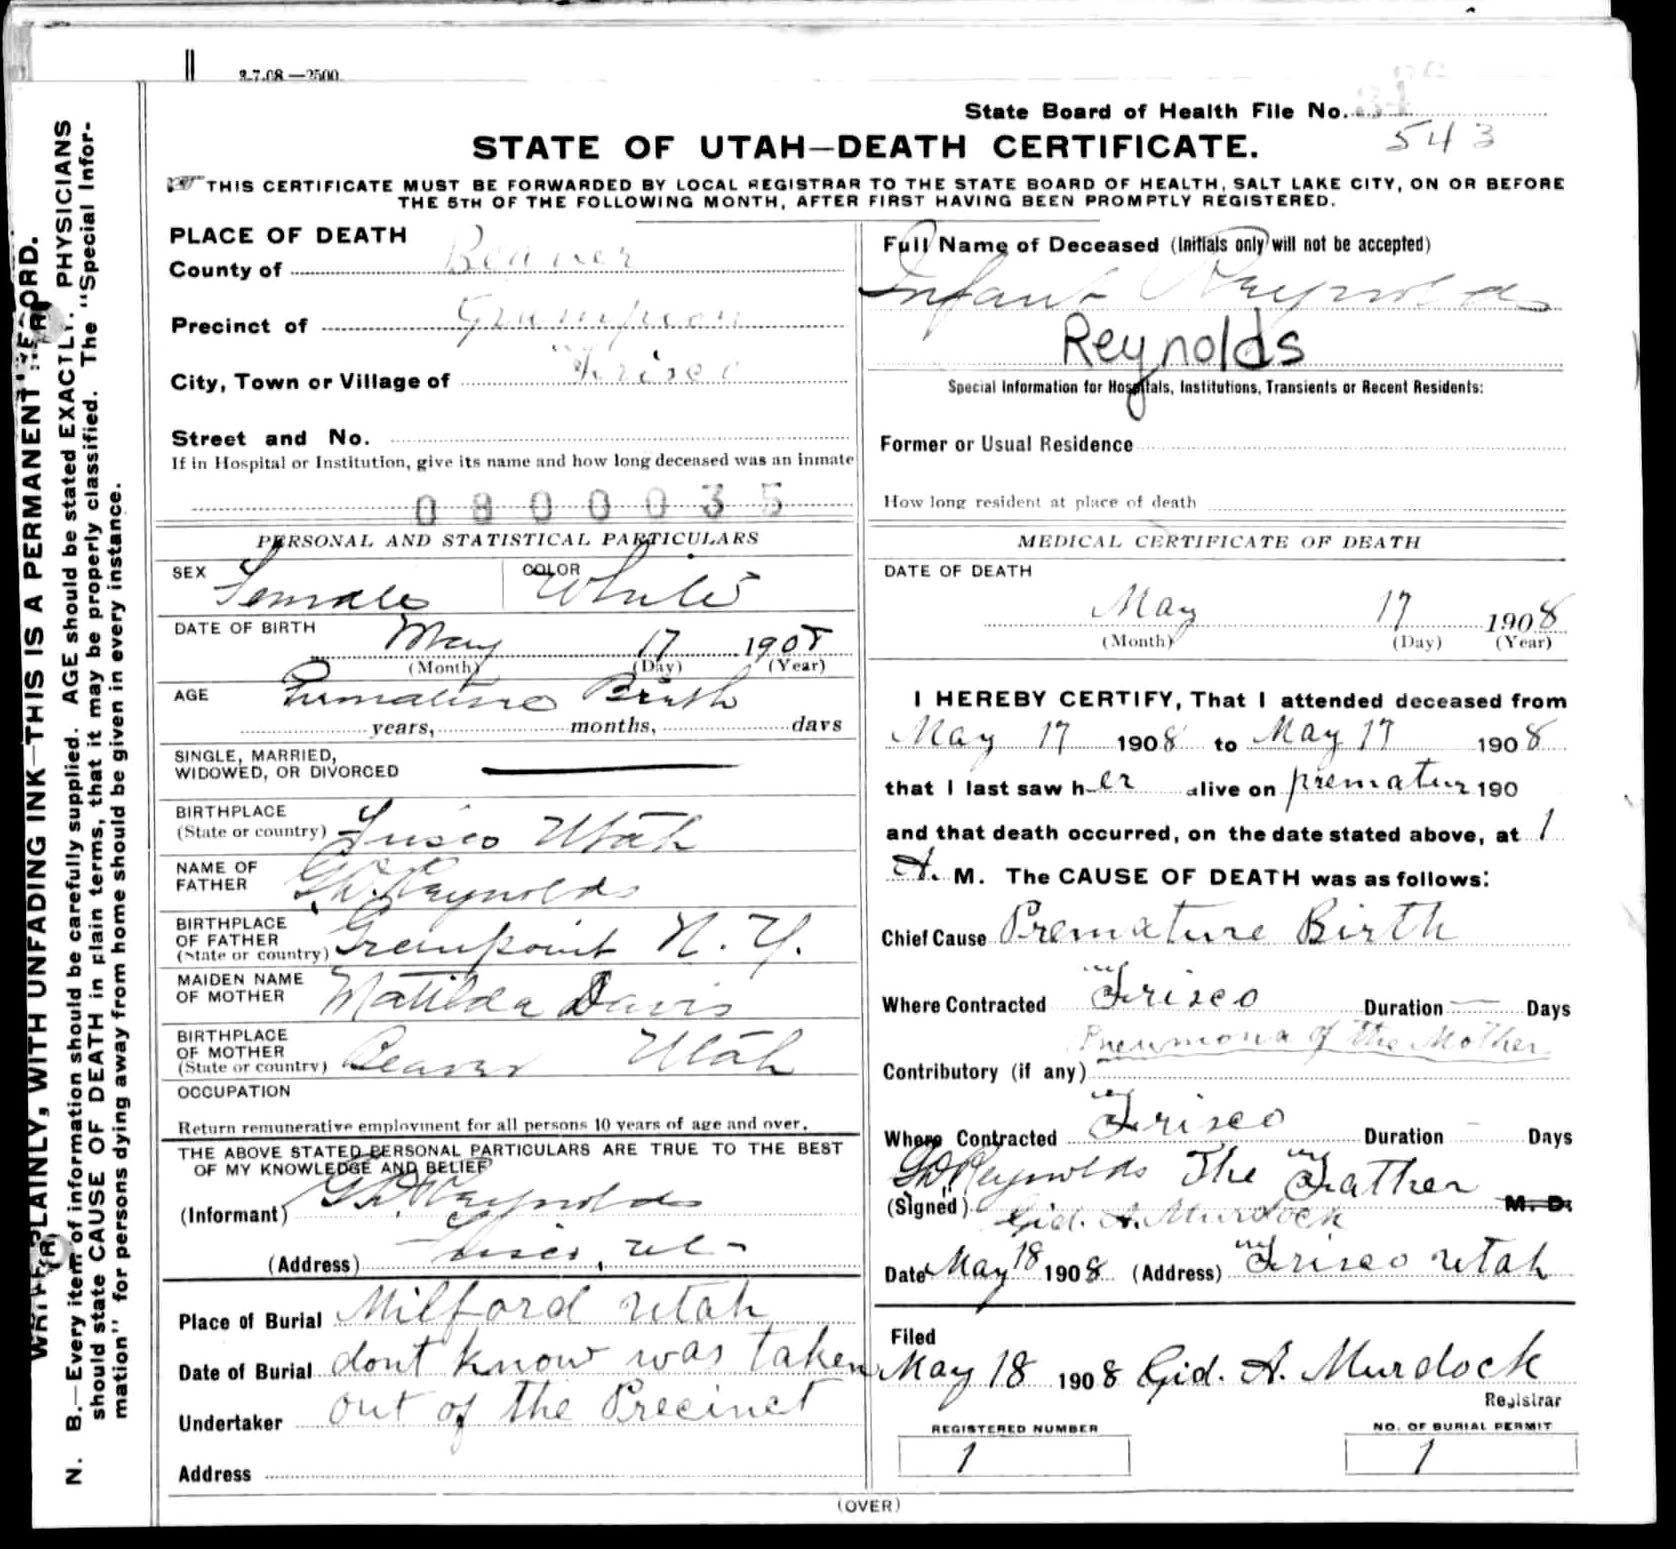 2-7-08—2500
State Board of Health File No. 34
543
STATE OF UTAH—DEATH CERTIFICATE.
THIS CERTIFICATE MUST BE FORWARDED BY LOCAL REGISTRAR TO THE STATE BOARD OF HEALTH, SALT LAKE CITY, ON OR BEFORE
THE 5TH OF THE FOLLOWING MONTH, AFTER FIRST HAVING BEEN PROMPTLY REGISTERED.
WRITE PLAINLY, WITH UNFADING INK—THIS IS A PERMANENT RECORD.
N. B.—Every item of information should be carefully supplied. AGE should be stated EXACTLY. PHYSICIANS
should state CAUSE OF DEATH in plain terms, that it may be properly classified. The "Special Infor-
mation" for persons dying away from home should be given in every instance.
PLACE OF DEATH
County of Beaver
Precinct of Grampion
City, Town or Village of Frisco
Street and No.
If in Hospital or Institution, give its name and how long deceased was an inmate
0800035
PERSONAL AND STATISTICAL PARTICULARS
SEX Female COLOR White
DATE OF BIRTH May 17 1908
(Month) (Day) (Year)
AGE Premature Birth
years, months, days
SINGLE, MARRIED,
WIDOWED, OR DIVORCED
BIRTHPLACE
(State or country) Frisco Utah
NAME OF
FATHER G.W. Reynolds
BIRTHPLACE
OF FATHER
(State or country) Greenpoint N.Y.
MAIDEN NAME
OF MOTHER Matilda Davis
BIRTHPLACE
OF MOTHER
(State or country) Beaver Utah
OCCUPATION
Return remunerative employment for all persons 10 years of age and over.
THE ABOVE STATED PERSONAL PARTICULARS ARE TRUE TO THE BEST
OF MY KNOWLEDGE AND BELIEF
(Informant) G.W. Reynolds
(Address) Frisco, Ut-
Place of Burial Milford Utah
Date of Burial dont know was taken
Undertaker out of the Precinct
Address
Full Name of Deceased (Initials only will not be accepted)
Infant Reynolds
Reynolds
Special Information for Hospitals, Institutions, Transients or Recent Residents:
Former or Usual Residence
How long resident at place of death
MEDICAL CERTIFICATE OF DEATH
DATE OF DEATH
May 17 1908
(Month) (Day) (Year)
I HEREBY CERTIFY, That I attended deceased from
May 17 1908 to May 17 1908
that I last saw her alive on prematur 190
and that death occurred, on the date stated above, at 1
A. M. The CAUSE OF DEATH was as follows:
Chief Cause Premature Birth
Where Contracted Frisco Duration — Days
Pneumona of the Mother
Contributory (if any)
Where Contracted Frisco Duration - Days
GW Reynolds The Father
(Signed) Gid. A. Murdock M. D.
Date May 18 1908 (Address) Frisco Utah
Filed
May 18 1908 Gid. A. Murdock
Registrar
REGISTERED NUMBER NO. OF BURIAL PERMIT
1 1
(OVER)